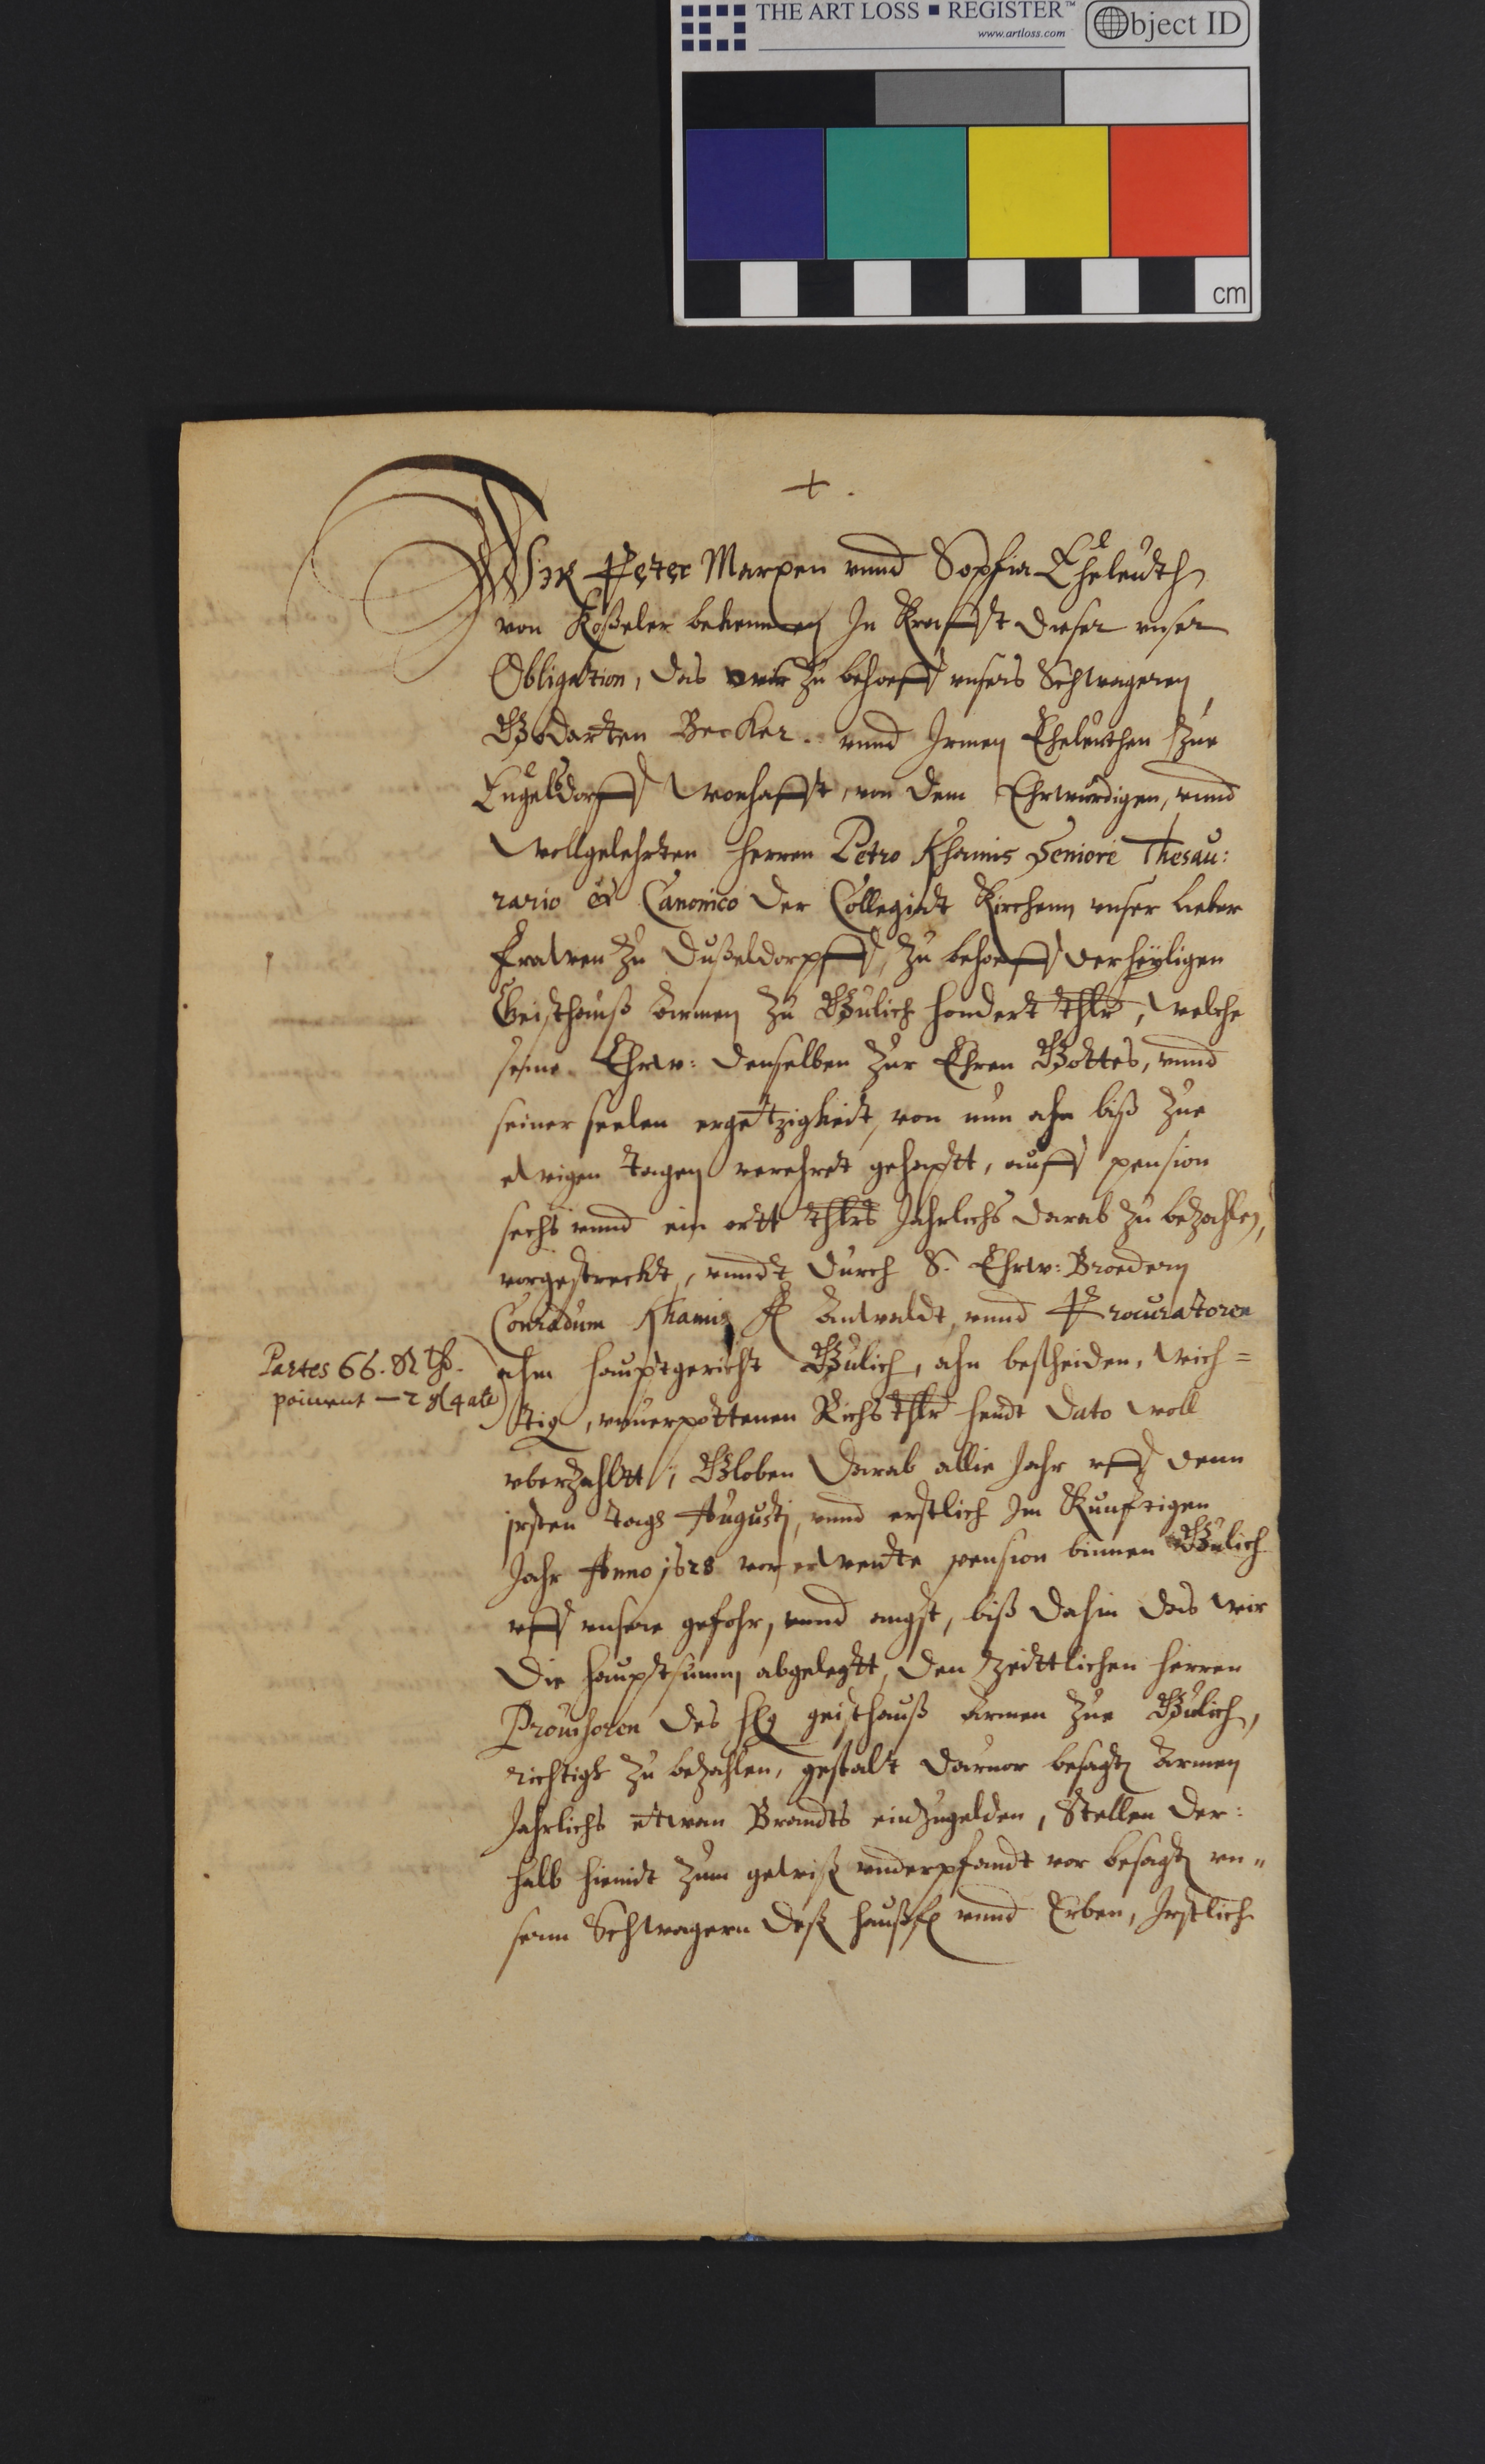 THE ART LOSS ▪ REGISTER™
www.artloss.com
Object ID
cm
+.
Wir Peter Marpen vnnd Sophia Eheleuth
von Koßeler bekennen In Krafft dieser vnser
Obligation, das wir zu behoeff vnsers Schwageren
Godarten Becker vnnd Irmen Eheleuthen zue
Engelsdorff wonhafft, von dem Ehrwürdigen, vnnd
wollgelehrten herren Petro Khamis Seniore Thesau:
rario et Canonico der Collegiat Kirchenn vnser lieber
Frawen zu Dußeldorpff, zu behoeff der heyligen
Geisthauß Armen zu Gulich hondert thlr, welche
seine Ehrw: denselben zur Ehren Gottes, vnnd
seiner seelen ergetzigkeit, von nun ahn biß zue
ewigen tagen verehret gehaptt, auff pension
sechs vnnd ein ortt thlrs Jahrlichs darab zu bezahlen,
vorgestreckt, vnndt durch S. Ehrw: Broedern
Conradum Khamis Anwaldt, vnnd Procuratoren
ahm hauptgericht Gulich, ahn bescheiden, wich=
tig, vnuerpottenen Richs thlr heudt dato woll
vberzahltt, Globen darab allie Jahr vff denn
irsten tags Augusti, vnnd erstlich Im Kunftigen
Jahr Anno 1628 vorerwente pension binnen Gulich
vff vnsere gefohr, vnnd angst, biß dahin das wir
die hauptsumm abgelegtt, den zeittlichen herren
Prouisoren des hlg geisthauß Armen zue Gulich,
richtigh zu bezahlen, gestalt daruor besagte Armen
Jahrlichs etwan Brandts einzugelden, Stellen der:
halb hiemit zum gewiß vnderpfandt vor besagte vn„
sern Schwagern deß haußfr vnnd Erben, Irstlich
Partes 66. R thr.
paiment — 2 gl 4 alb